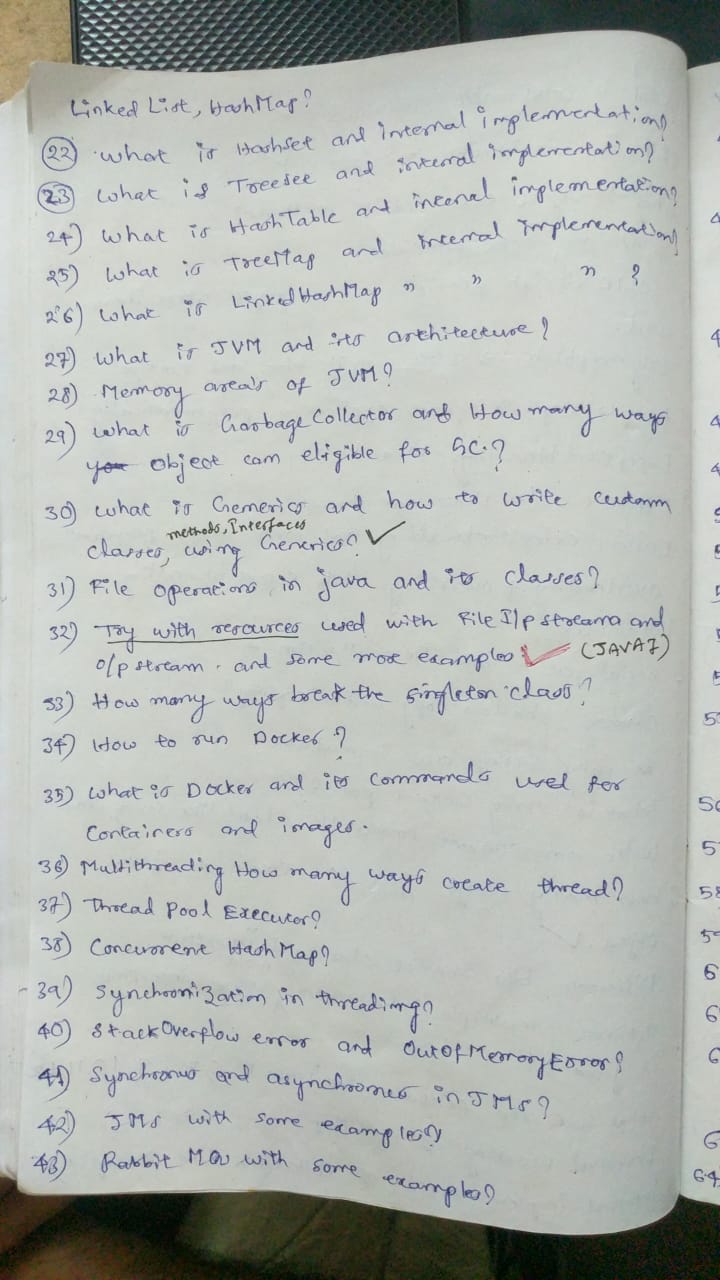 Linked List, HashMap?
22 What is Hashset and internal implementation?
23 What is Treeset and internal implementation?
24) What is HashTable and internal implementation?
25) What is TreeMap and internal implementation?
26) What is LinkedHashMap " " " ?
27) What is JVM and its architecture?
28) Memory area's of JVM?
29) What is Garbage Collector and How many ways
object can eligible for GC.?
30) What is Generics and how to write custom
methods, Interfaces
classes, using Generics? ✓
31) File operations in java and its classes?
32) Try with resources used with File I/p streams and
o/p stream. and some more examples ✓ (JAVA7)
33) How many ways break the singleton class?
34) How to run Docker?
35) What is Docker and its commands used for
Containers and images.
36) Multithreading How many ways create thread?
37) Thread Pool Executor?
38) Concurrent HashMap?
39) Synchronization in threading?
40) StackOverflow error and OutOfMemoryError?
41) Synchronus and asynchronus in JMS?
42) JMS with some examples?
43) Rabbit MQ with some examples?
58
64